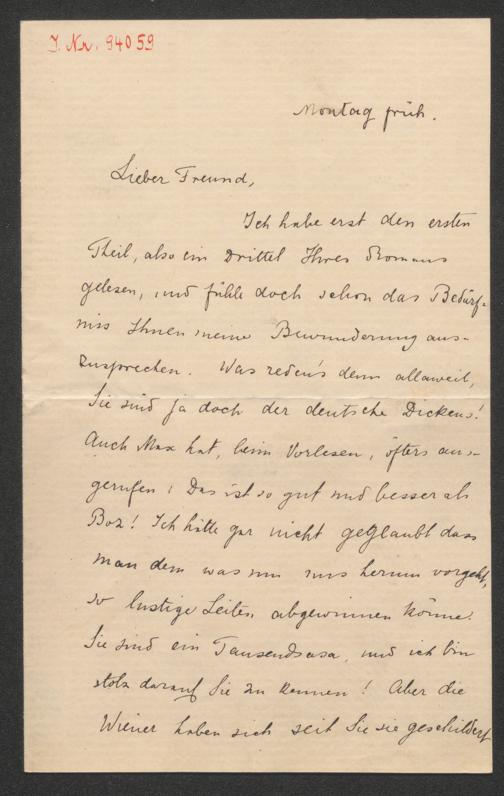 J. Nr. 94059
Montag früh.
Lieber Freund,
Ich habe erst den ersten
Theil, also ein Drittel Ihres Romans
gelesen, und fühle doch schon das Bedürf-
niss Ihnen meine Bewunderung aus-
zusprechen. Was reden's denn allaweil,
Sie sind ja doch der deutsche Dickens!
Auch Max hat, beim Vorlesen, öfters aus-
gerufen: Das ist so gut und besser als
Boz! Ich hätte gar nicht geglaubt dass
man dem was um uns herum vorgeht,
so lustige Seiten abgewinnen könne.
Sie sind ein Tausendsasa, und ich bin
stolz darauf Sie zu kennen! Aber die
Wiener haben sich seit Sie sie geschildert